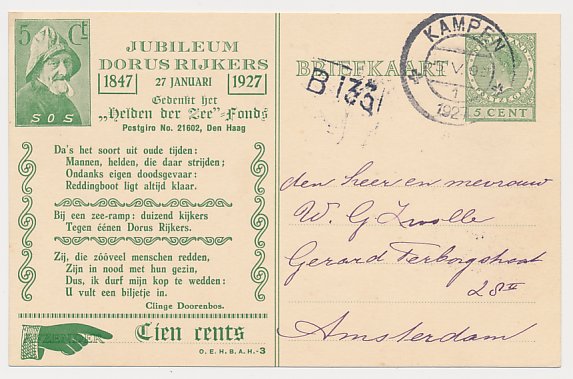 5 Ct
SOS
JUBILEUM
DORUS RIJKERS
1847 27 JANUARI 1927
Gedenkt het
„Helden der Zee"-Fonds
Postgiro No. 21602, Den Haag
Da's het soort uit oude tijden:
Mannen, helden, die daar strijden;
Ondanks eigen doodsgevaar:
Reddingboot ligt altijd klaar.
Bij een zee-ramp: duizend kijkers
Tegen éénen Dorus Rijkers.
Zij, die zóóveel menschen redden,
Zijn in nood met hun gezin,
Dus, ik durf mijn kop te wedden:
U vult een biljetje in.
Clinge Doorenbos.
AFZENDER
Tien cents
O. E. H. B. A. H.-3
BRIEFKAART
KAMPEN
1927
5 CENT
den heer en mevrouw
W. G. Zwolle
Gerard Terborgstraat
28 II
Amsterdam